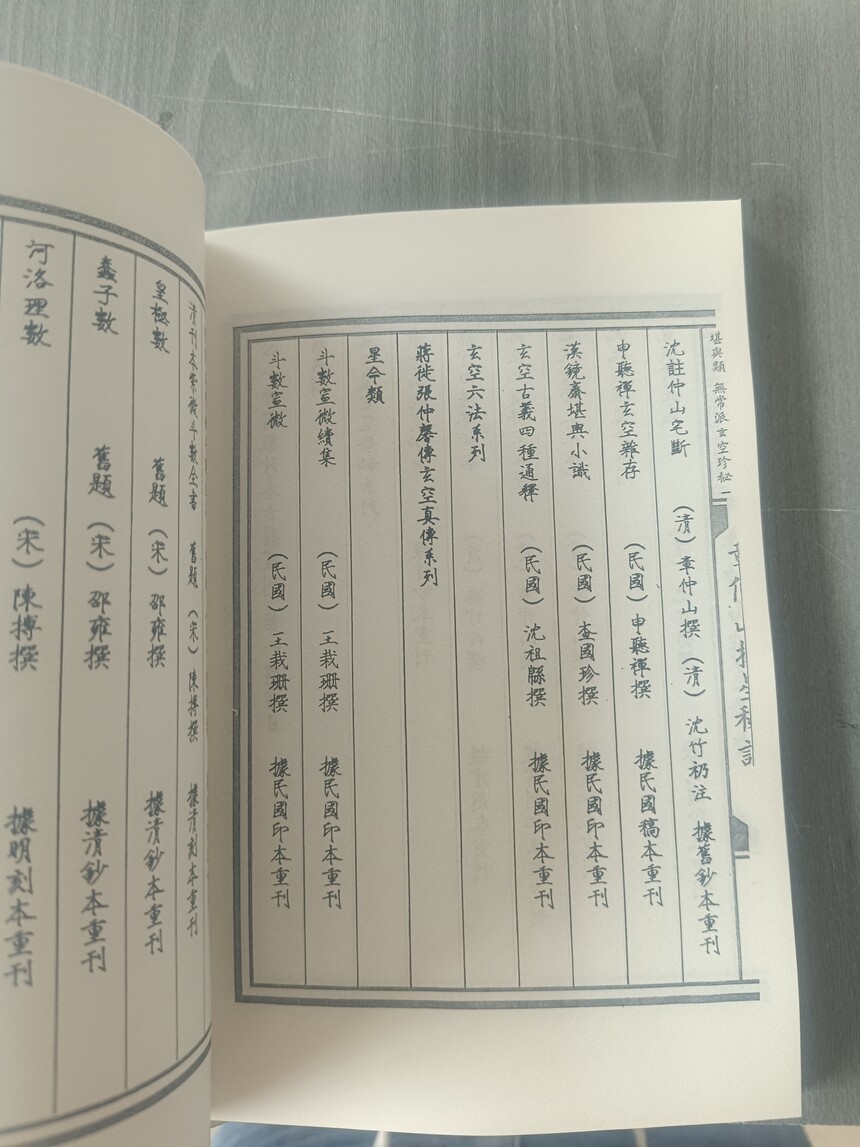 堪輿類 無常派玄空珍秘
沈註仲山宅斷 (清)章仲山撰 (清)沈竹礽注 據舊鈔本重刊
申聽禪玄空雜存 (民國)申聽禪撰 據民國稿本重刊
漢鏡齋堪輿小識 (民國)查國珍撰 據民國印本重刊
玄空古義四種通釋 (民國)沈祖緜撰 據民國印本重刊
玄空六法系列
蔣徒張仲馨傳玄空真傳系列
星命類
斗數宣微續集 (民國)王栽珊撰 據民國印本重刊
斗數宣微 (民國)王栽珊撰 據民國印本重刊
清刊本紫微斗數全書 舊題(宋)陳摶撰 據清刻本重刊
皇極數 舊題(宋)邵雍撰 據清鈔本重刊
蠢子數 舊題(宋)邵雍撰 據清鈔本重刊
河洛理數 (宋)陳摶撰 據明刻本重刊